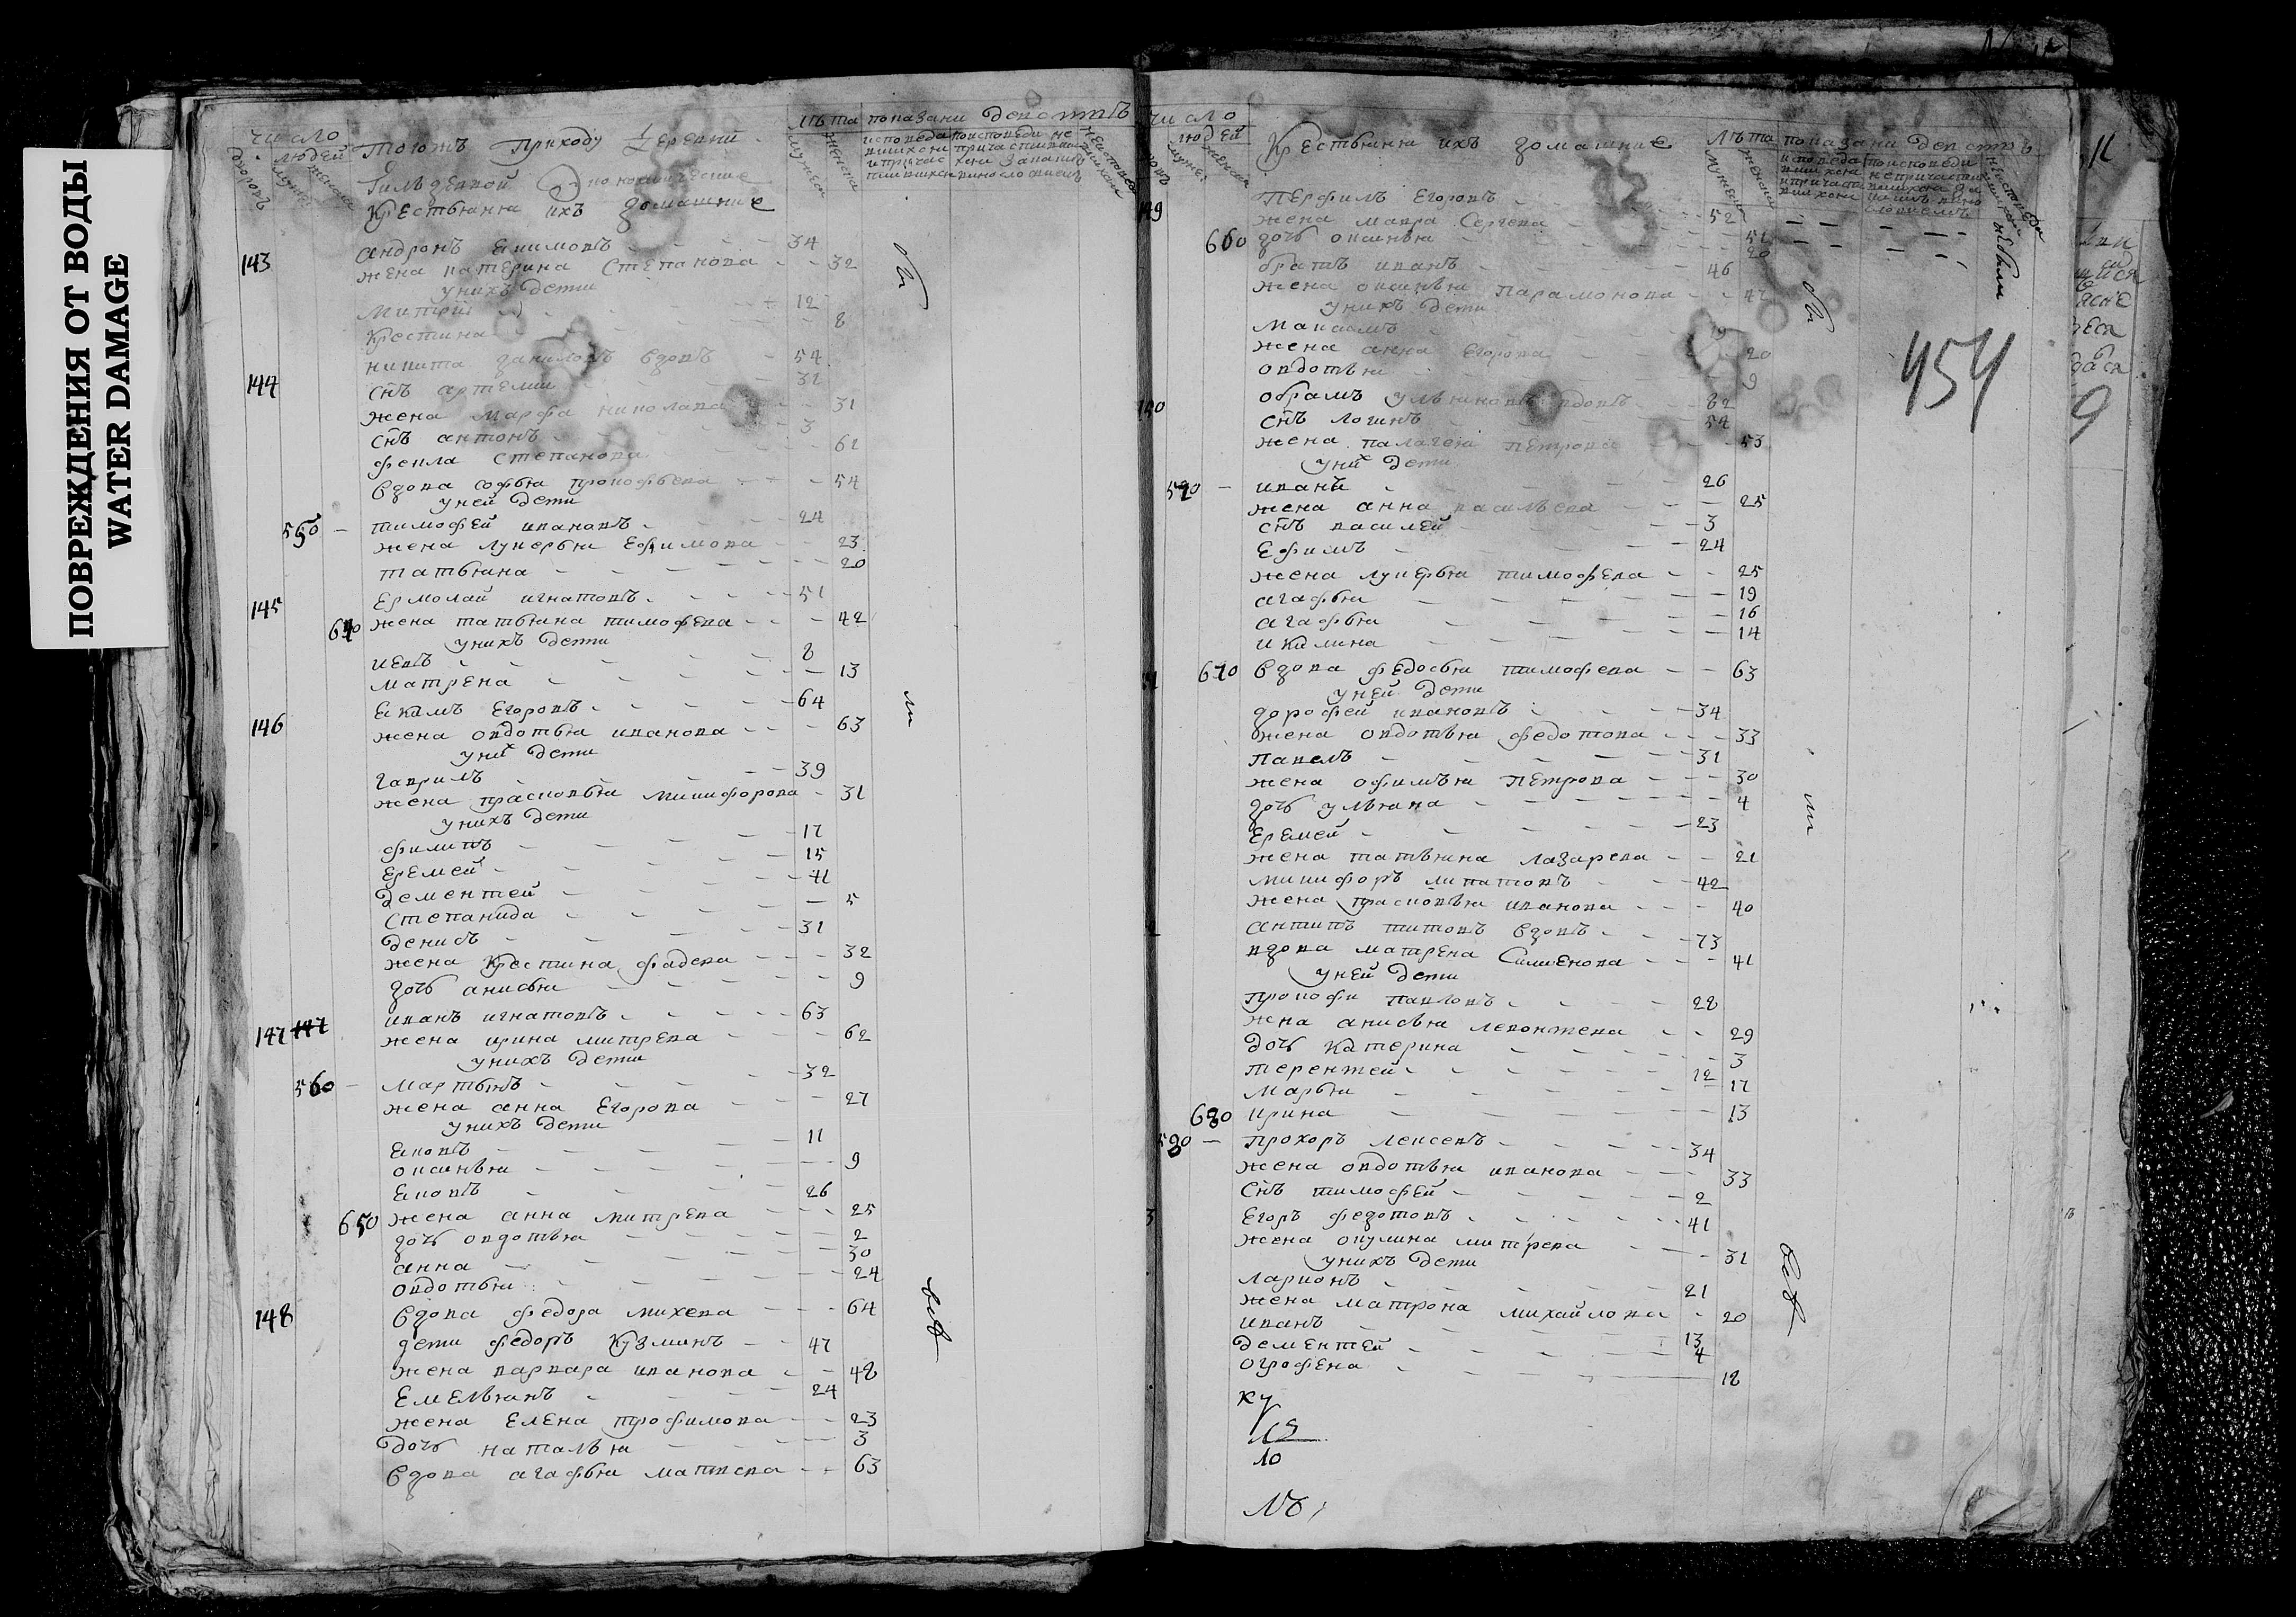 ПОВРЕЖДЕНИЯ ОТ ВОДЫ
WATER DAMAGE
число
людей
лѣта показани действъ
тогожъ приходу деревни
крестьяня ихъ домашние
143
андронъ екимовъ 34
жена катерина степанова 32
унихъ дети
митрей 12
крестина 8
144
никита даниловъ вдовъ 54
снъ артемии 32
жена марфа николаева 31
снъ антонъ 3
фекла степанова 61
вдова софья прокофьева 54
уней дети
550 тимофей ивановъ 24
жена лукерья ефимова 23
татьяна 20
145
ермолай игнатовъ 51
640 жена татьяна тимофева 42
унихъ дети
иевъ 8
матрена 13
146
екимъ егоровъ 64
жена овдотья иванова 63
уних дети
гаврилъ 39
жена прасковья микифорова 31
унихъ дети
филипъ 17
еремей 15
дементей 11
степанида 5
денисъ 31
жена крестина фадева 32
дочь анисья 9
147 147
иванъ игнатовъ 63
жена ирина митрева 62
унихъ дети
560 мартынъ 32
жена анна егорова 27
унихъ дети
яковъ 11
оксинья 9
яковъ 26
650 жена анна митрева 25
дочь овдотья 2
анна 30
овдотья 24
148
вдова федора михева 64
дети федоръ кузминъ 47
жена варвара иванова 48
емельянъ 24
жена елена трофимова 23
дочь наталья 3
вдова агафья матвева 63
число
людей
крестьяня ихъ домашние
лѣта показани действъ
перфилъ егоровъ 52
жена мавра сергева 51
660 дочь оксинья 20
братъ иванъ 46
жена оксинья парамонова 47
унихъ дети
максимъ 19
жена анна егорова 20
овдотья 9
454
обрамъ ульяновъ вдовъ 82
снъ логинъ 54
жена палагея петрова 53
уних дети
570 иванъ 26
жена анна васильева 25
снъ василей 3
ефимъ 24
жена лукерья тимофева 25
агафья 19
агафья 16
акилина 14
670 вдова федосья тимофева 63
уней дети
дорофей ивановъ 34
жена овдотья федотова 33
павелъ 31
жена офимья петрова 30
дочь ульяна 4
еремей 23
жена татьяна лазарева 21
микифоръ липатовъ 42
жена прасковья иванова 40
антипъ титовъ вдовъ 73
вдова матрена симионова 41
уней дети
прокофи павловъ 28
жена анисья левонтева 29
дочь катерина 3
терентей 12
марья 17
680 ирина 13
580 прохоръ лексевъ 34
жена овдотья иванова 33
снъ тимофей 2
егоръ федотовъ 41
жена окулина митрева 31
унихъ дети
ларионъ 21
жена матрона михайлова 20
иванъ 13
дементей 4
огрофена 18